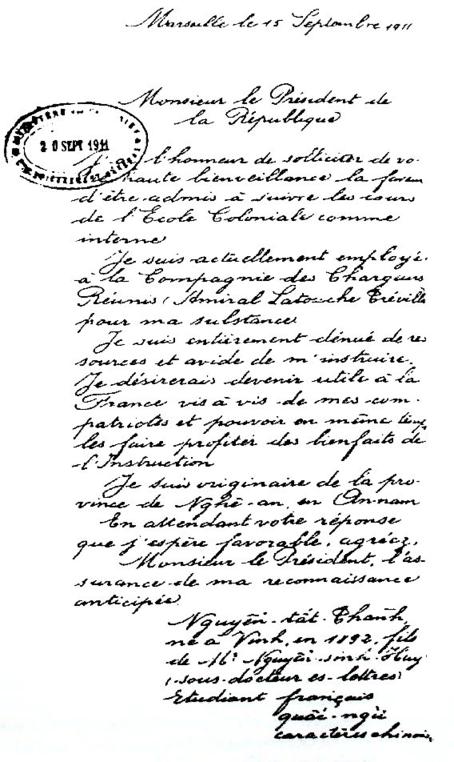 Marseille le 15 Septembre 1911
Monsieur le Président de
la République
20 SEPT 1911
J'ai l'honneur de solliciter de vo
haute bienveillance la faveu
d'être admis à suivre les cours
de l'Ecole Coloniale comme
interne
Je suis actuellement employé
à la Compagnie des Chargeurs
Réunis (Amiral Latouche Tréville
pour ma substance
Je suis entièrement dénué de res
sources et avide de m'instruire.
Je désirerais devenir utile à la
France vis à vis de mes com-
patriotes et pouvoir en même temps
les faire profiter des bienfaits de
l'Instruction
Je suis originaire de la pro-
vince de Nghê-an, en Annam
En attendant votre réponse
que j'espère favorable, agréez,
Monsieur le Président, l'as-
surance de ma reconnaissance
anticipée
Nguyên-tât-Thanh,
né à Vinh, en 1892, fils
de Mr Nguyên-sinh-Huy
(sous-docteur ès-lettres)
Etudiant français
quôc-ngu
caractères chinois